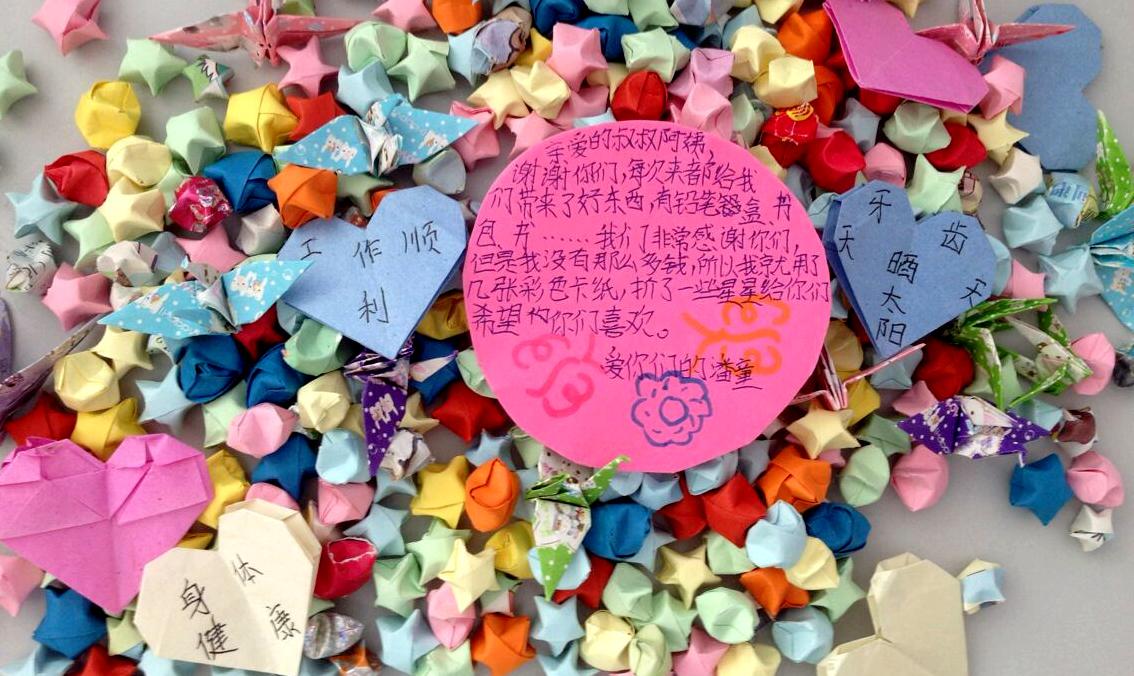 亲爱的叔叔阿姨,
谢谢你们,每次来都给我
们带来了好东西,有铅笔盒、书
包、书……我们非常感谢你们,
但是我没有那么多钱,所以我就用
几张彩色卡纸,折了一些星星给你们
希望你们喜欢。
爱你们的潘童
工作顺
利
牙齿
天天
晒
太
阳
身体
健康